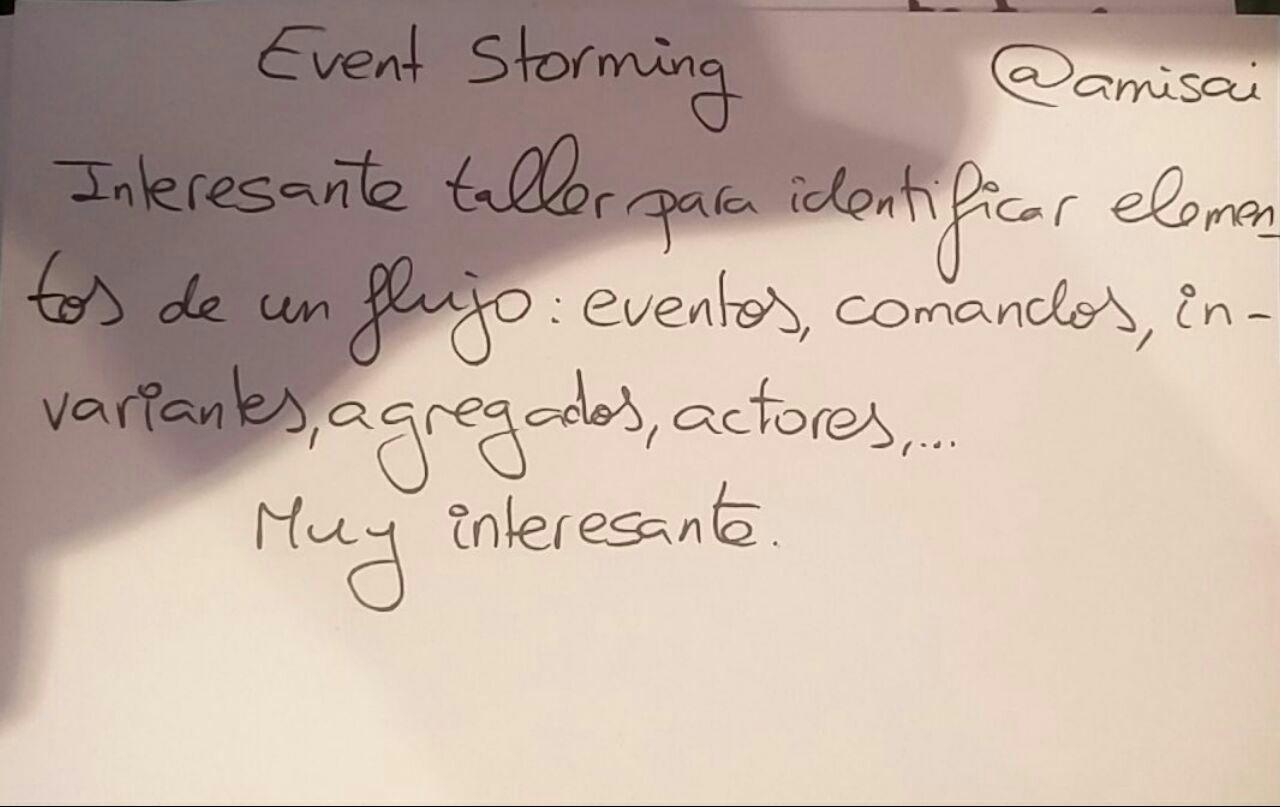 Event Storming @amisai
Interesante taller para identificar elemen-
tos de un flujo: eventos, comandos, in-
variantes, agregados, actores,...
Muy interesante.